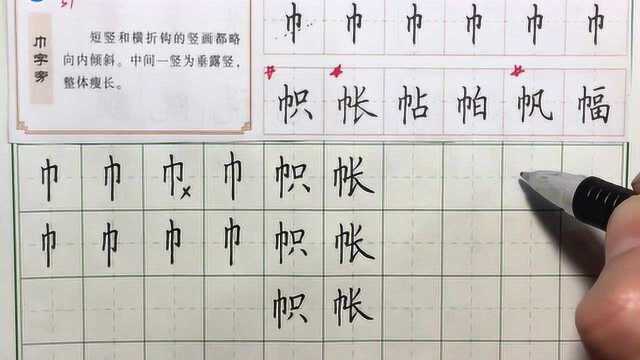 巾字旁
短竖和横折钩的竖画都略
向内倾斜。中间一竖为垂露竖，
整体瘦长。
巾 巾 巾 巾 巾 巾
帜 帐 帖 帕 帆 幅
巾 巾 巾 × 巾 帜 帐
巾 巾 巾 巾 帜 帐
帜 帐